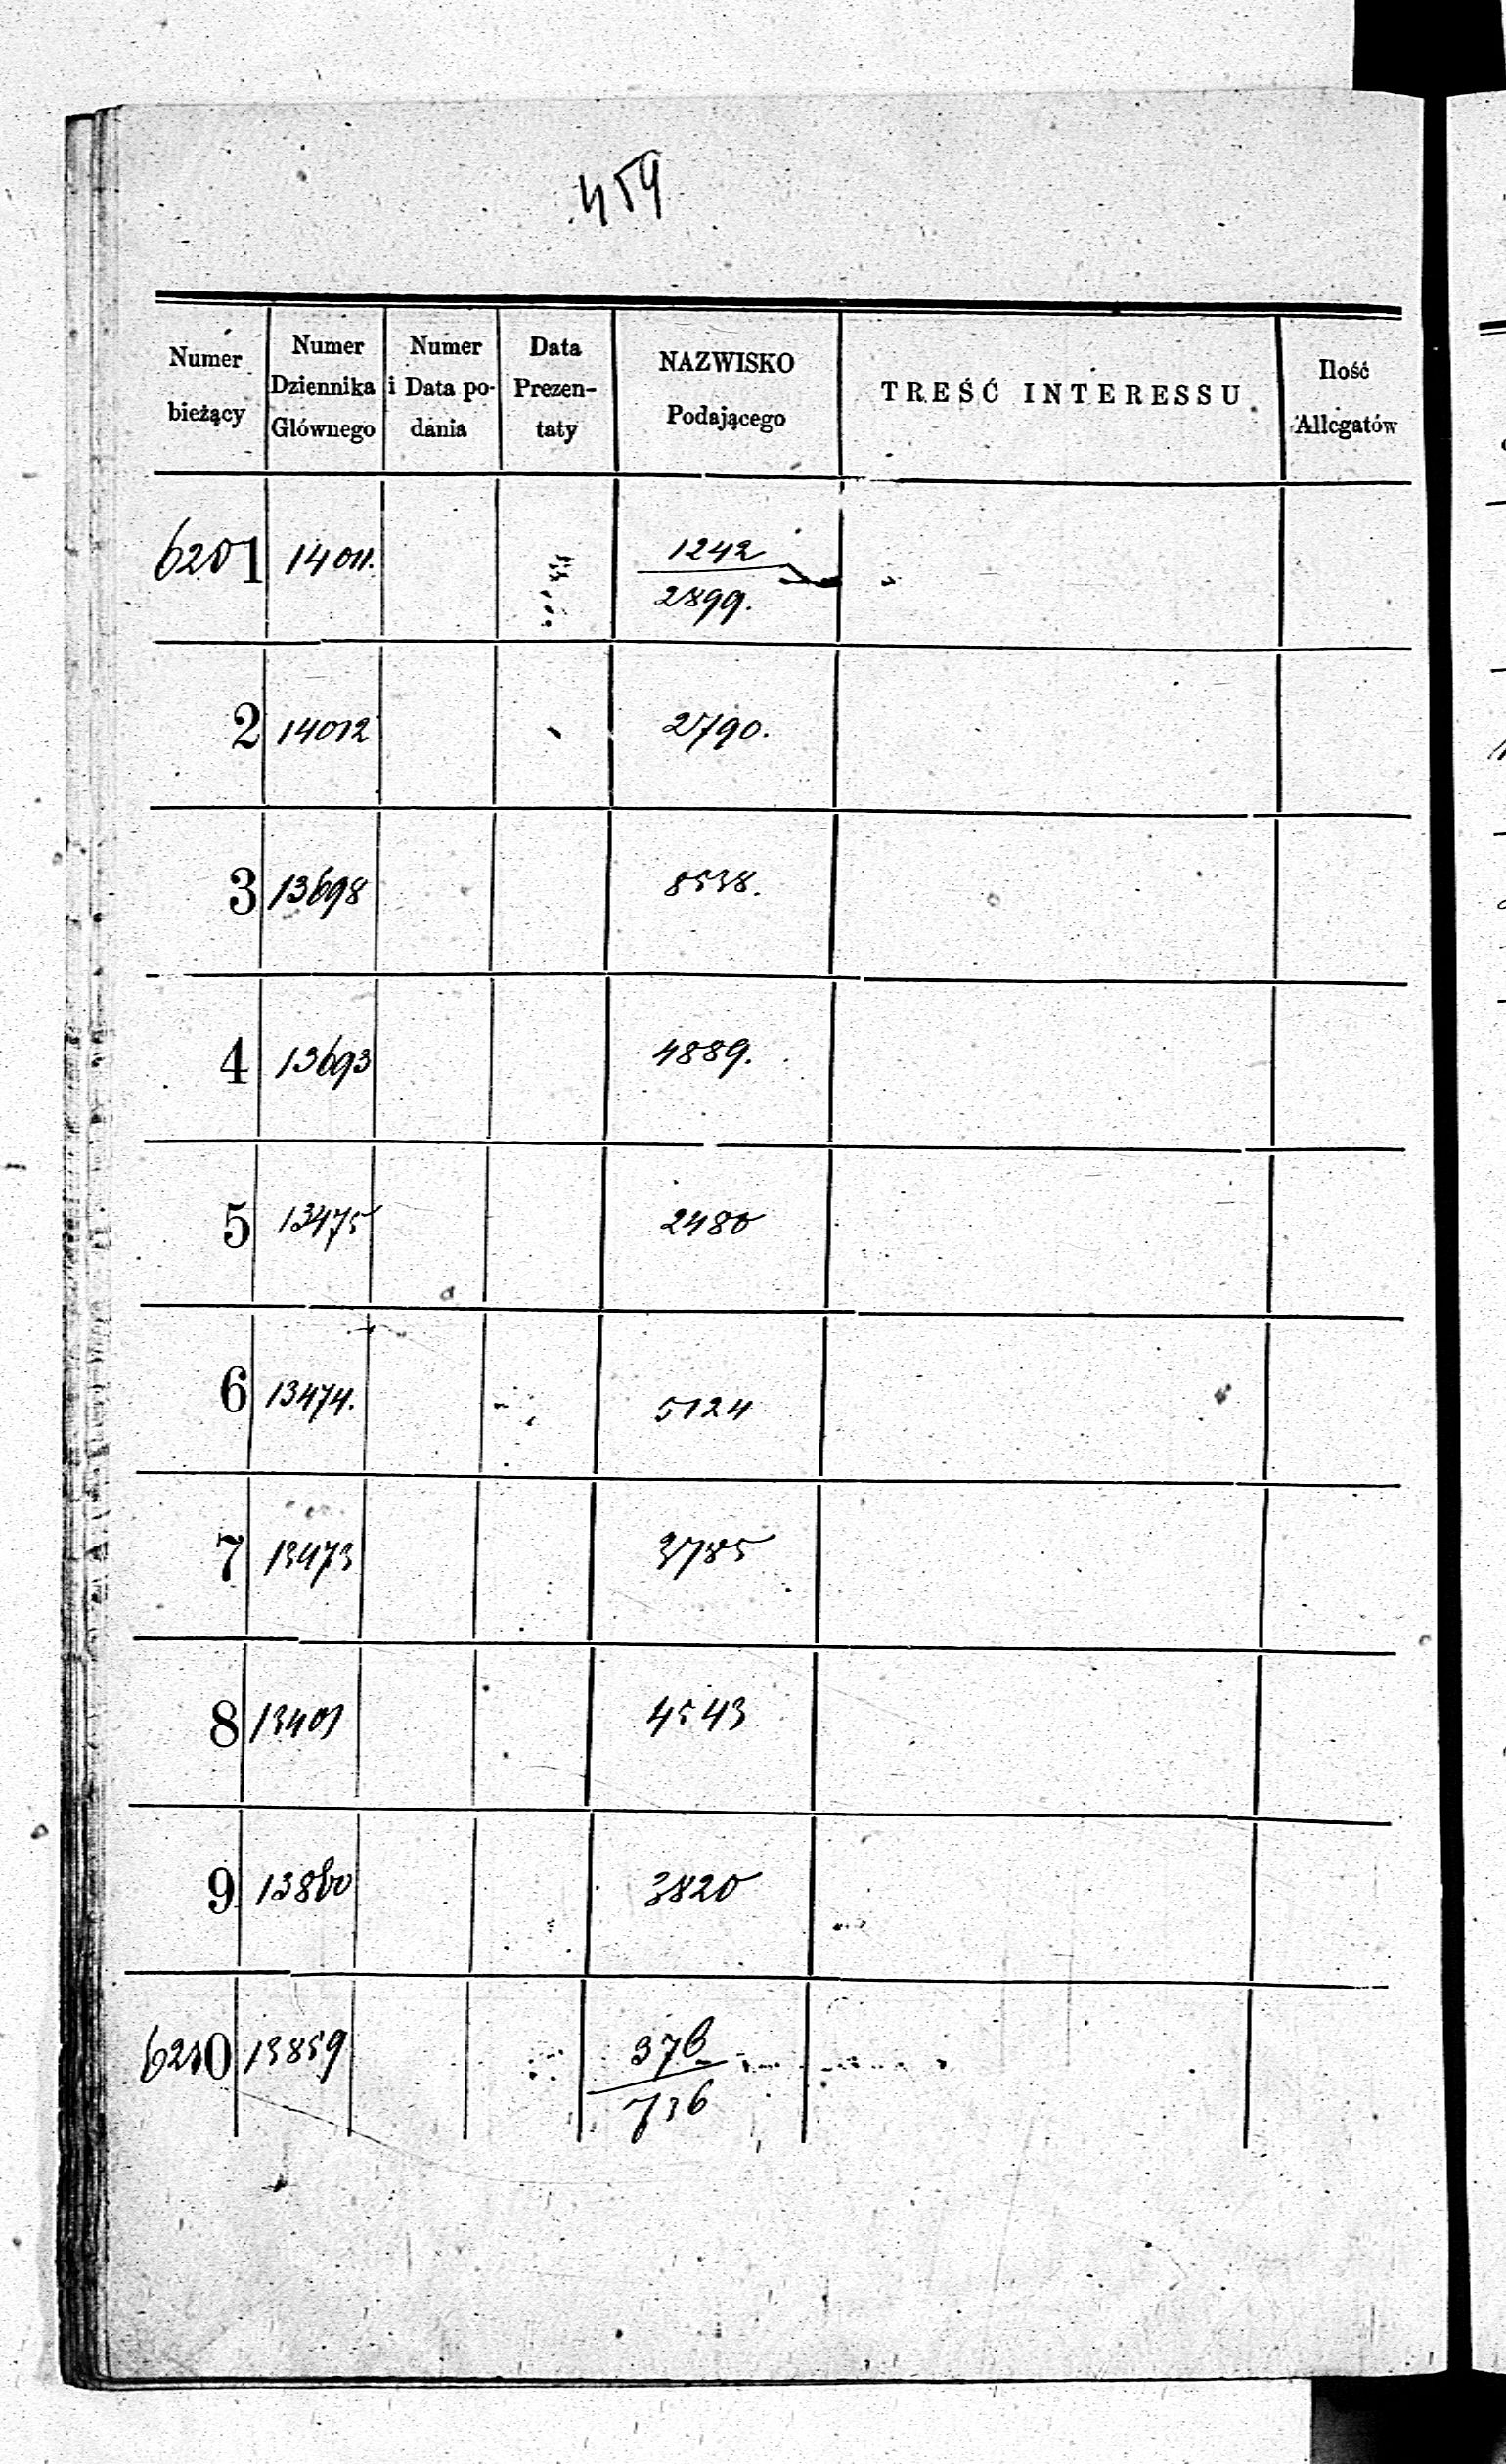 459
Numer bieżący | Numer Dziennika Głównego | Numer i Data podania | Data Prezentaty | NAZWISKO Podającego | TREŚĆ INTERESSU | Ilość Allegatów
6201 14011. 1242
2899.
2 14012 2790.
3 13698 8538.
4 13693 4889.
5 13475 2480
6 13474. 5124
7 13473 3785
8 13401 4543
9 13860 3820
6210 13859 376
736